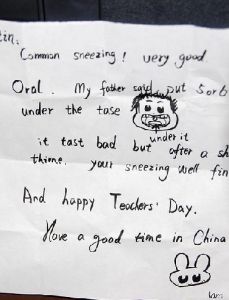 tin.
Common sneezing! very good
Oral. My father said put sorb
under the tase
under it
it tast bad but after a sh
thime. your sneezing well fin
And happy Teachers' Day.
Have a good time in China